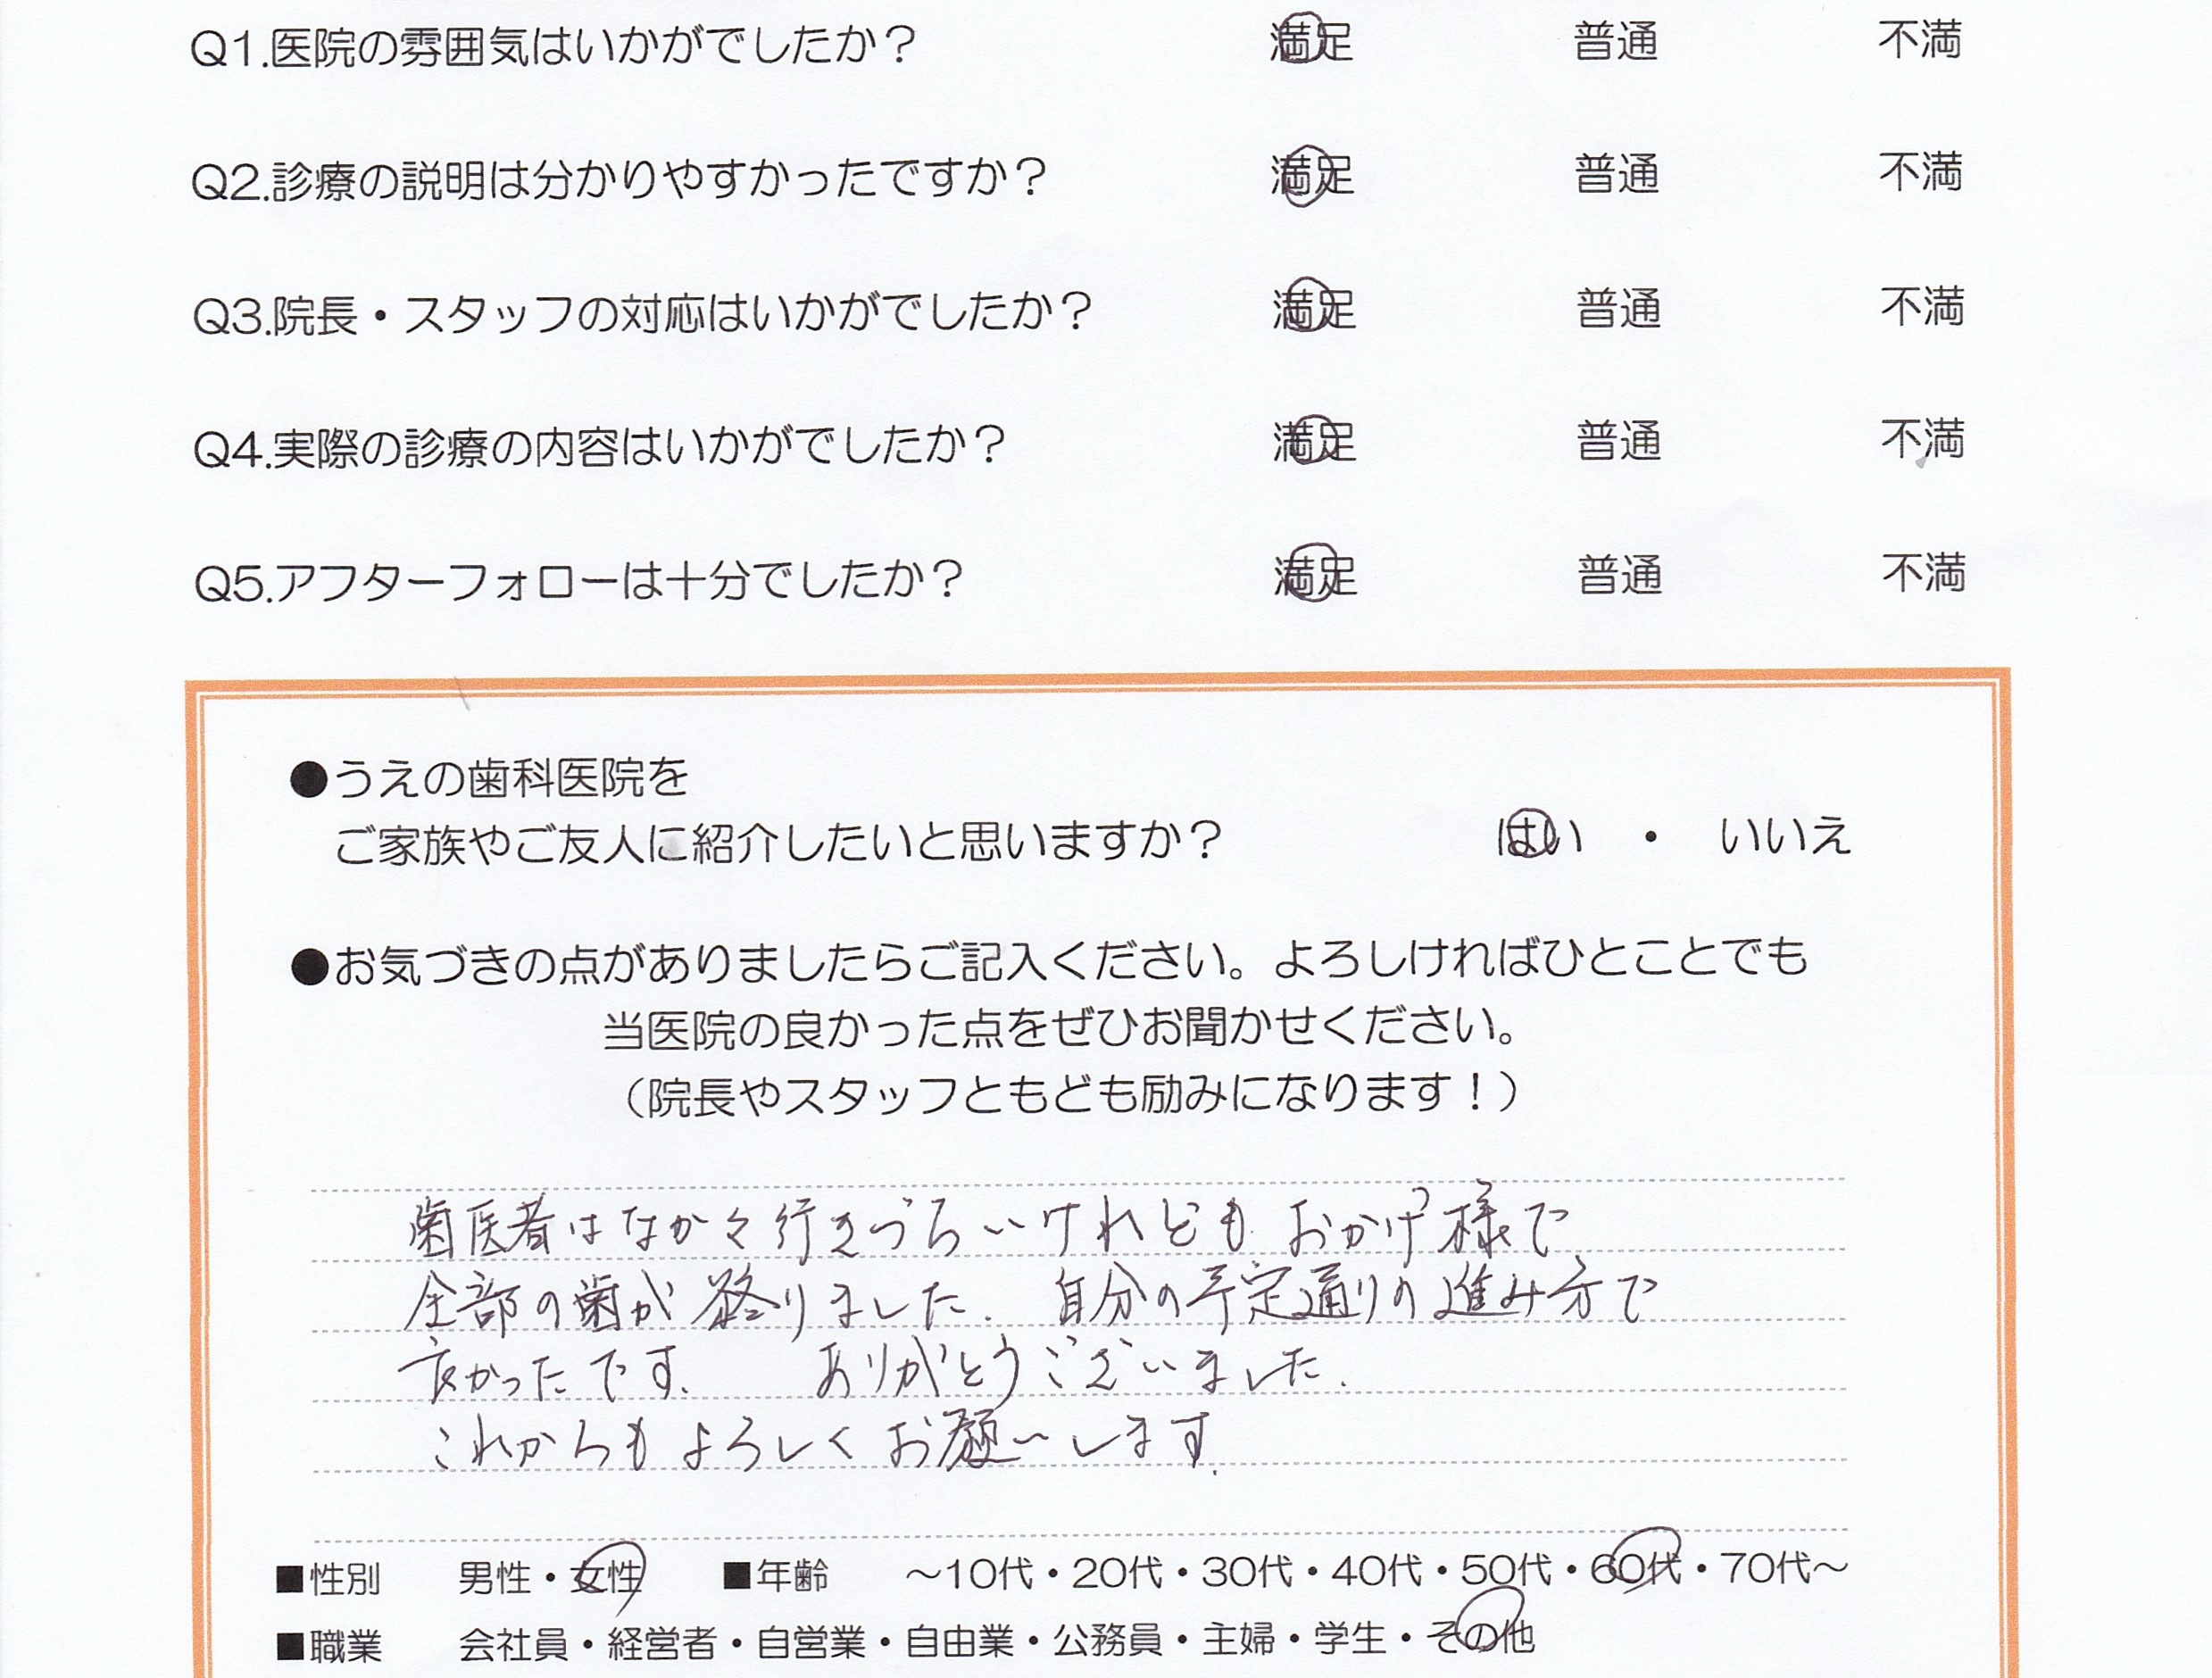 Q1.医院の雰囲気はいかがでしたか？ 満足 普通 不満
Q2.診療の説明は分かりやすかったですか？ 満足 普通 不満
Q3.院長・スタッフの対応はいかがでしたか？ 満足 普通 不満
Q4.実際の診療の内容はいかがでしたか？ 満足 普通 不満
Q5.アフターフォローは十分でしたか？ 満足 普通 不満
●うえの歯科医院を
ご家族やご友人に紹介したいと思いますか？ はい ・ いいえ
●お気づきの点がありましたらご記入ください。よろしければひとことでも
当医院の良かった点をぜひお聞かせください。
（院長やスタッフともども励みになります！）
歯医者はなか々行きづらいけれども おかげ様で
全部の歯が終りました. 自分の予定通りの進み方で
良かったです. ありがとうございました.
これからもよろしくお願いします.
■性別 男性・女性 ■年齢 〜10代・20代・30代・40代・50代・60代・70代〜
■職業 会社員・経営者・自営業・自由業・公務員・主婦・学生・その他